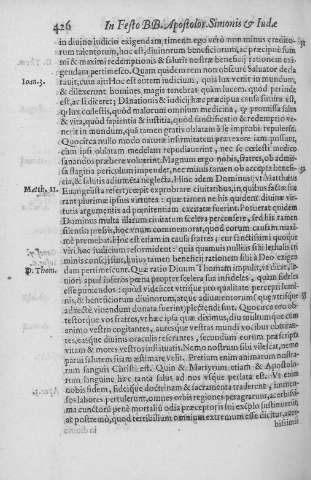 426 In Festo BB. Apostolor. Simonis & Iudæ
in diuino iudicio exigendam, timeam ego verò non minus credito-
rum talentorum, hoc est, diuinorum beneficiorum, ac præcipuè sum
mi & maximi redemptionis & salutis nostræ beneficij rationem exi-
gendam pertimesco. Quam quidem rem non obscurè Saluator decla
Ioan. 3. rauit, cum ait: Hoc est autem iudicium, quia lux venit in mundum,
& dilexerunt homines magis tenebras, quàm lucem. quod perinde
est, ac si diceret: Damnationis & iudicij hæc præcipua causa futura est,
lux cœlestis, quòd malorum omnium medicina,
& vita, quòd sapientia & iustitia, quòd sanctificatio & redemptio ve-
nerit in mundum, quâ tamen gratis oblatam à se improbi repulerint.
Quocirca nullo modo natura infirmitatem prætexere iam possunt,
cùm ipsi oblatam medelam repudiauerint, nec se cœlesti medico
sanandos præbere voluerint. Magnum ergo nobis, fratres, ob admis-
sa flagitia periculum impendet, nec minus tamen ob accepta benefi-
cia, & salutis adiumenta neglecta. Hinc idem Dominus, vt Matthæus
Matth. 11. Euangelista refert, cœpit exprobrare ciuitatibus, in quibus factæ fue
rant plurimæ ipsius virtutes: quæ tamen ne his quidem diuinæ vir-
tutis argumentis ad pœnitentiam excitatæ fuerint. Poterat quidem
Dominus multa illarum ciuitatum scelera percensere, sed his tamen
silentio pressis, hoc vnum commemorat, quòd eorum causam maxi-
mè premebat. Hoc est etiam in causa fratres, cur sanctissimi quique
viri hoc iudicium reformident: quia quamuis nullius sibi lethalis cri
minis conscij sint, huius tamen beneficij rationem sibi à Deo exigen
D. Thom. dam pertimescunt. Quæ ratio Diuum Thomam impulit, vt diceret,
apud inferos pœna propter scelera sua infideles, quàm fideles
esse puniendos: quòd videlicet vtrique pro qualitate percepti lumi-
nis, & beneficiorum diuinorum, atque adiumentorum (quę vtrisque
ad rectè viuendum donata fuerint) plectendi sunt. Quocirca ob-
testor que vos fratres, vt hæc ipsa quæ diximus, diu multumque cum
animo vestro cogitantes, auresque vestras mundi vocibus obturan-
tes, easque diuinis oraculis reserantes, secundùm eorum præscripta
vitam & mores vestros instituatis. Nemo nostrum sibi vilescat, nemo
parui salutem suam æstimare velit. Pretium enim animarum nostra-
rum sanguis Christi est. Quin & Martyrum etiam & Apostolo-
rum sanguine hæc tanta salus ad nos vsque perlata est. Vt enim
nobis fidem, fideique doctrinam & sacramenta traderent, immen-
sos labores pertulerunt, omnes orbis regiones peragrarunt,
ma cunctorum penè mortalium odia præceptoris sui exemplo sustinuerunt,
ac postremò, quod terribilium omnium extremum esse dicitur,
bissimis